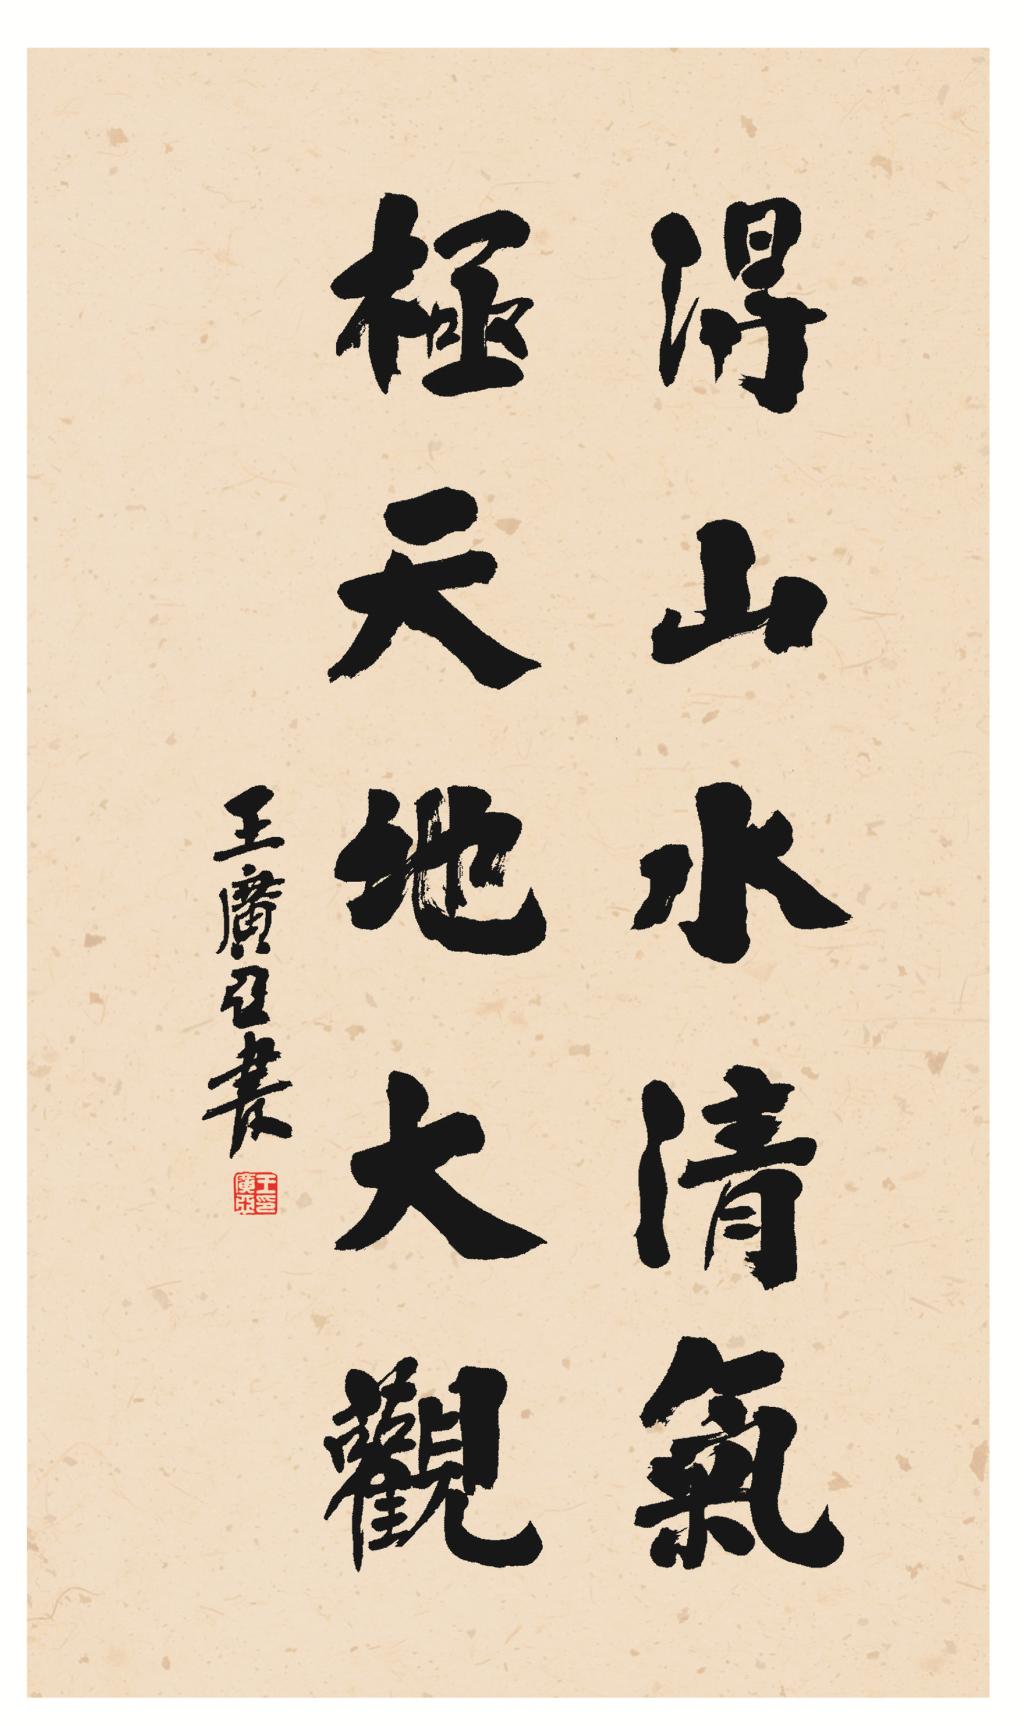 得山水清氣
極天地大觀
王廣亞書
王廣亞印